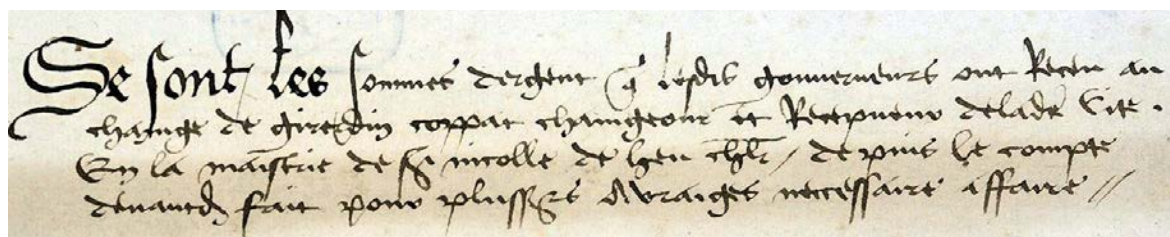 Se sont les sommes d'ergent q̃ lesdis gouverneurs ont Receu au
chainge de girerdin coppat chaingeour et Recepveur delade Cite.
En la maistrie de sr̃ nicolle de heu chlr̃ / de puis le compte
devantd̃ fait pour plussrs̃ Ovraiges neccessaire a ffaire //